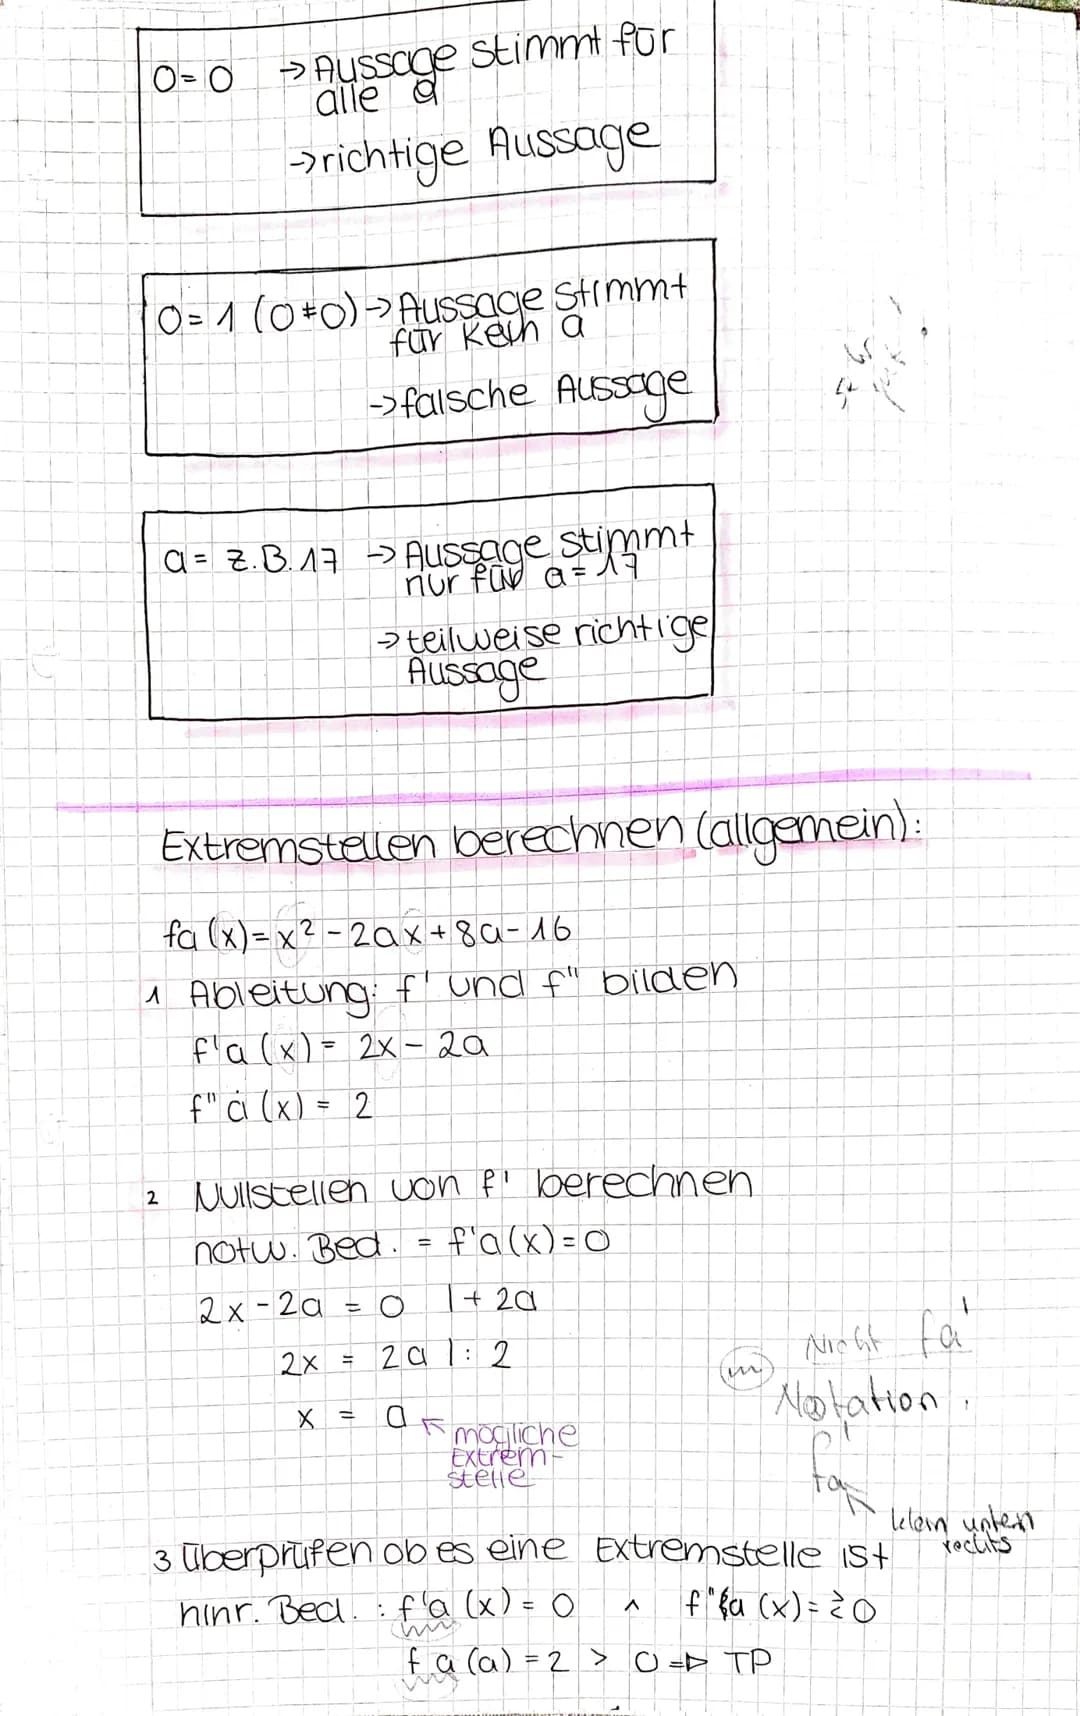 0=0 → Aussage stimmt für
alle a
→ richtige Aussage
0=1 (0≠0) → Aussage stimmt
für kein a
→ falsche Aussage
a = z.B. 17 → Aussage stimmt
nur für a = 17
→ teilweise richtige
Aussage
Extremstellen berechnen (allgemein):
fa (x) = x² - 2ax + 8a - 16
1 Ableitung: f' und f" bilden
f'a (x) = 2x - 2a
f"a (x) = 2
2 Nullstellen von f' berechnen
notw. Bed. = f'a(x) = 0
2x - 2a = 0 | + 2a
2x = 2a | : 2
x = a ← mögliche
Extrem-
stelle
Nicht fa'
Notation
f'a
klein unten
rechts
3 überprüfen ob es eine Extremstelle ist
hinr. Bed. : f'a (x) = 0 ∧ f"a (x) = ≷ 0
f a (a) = 2 > 0 => TP